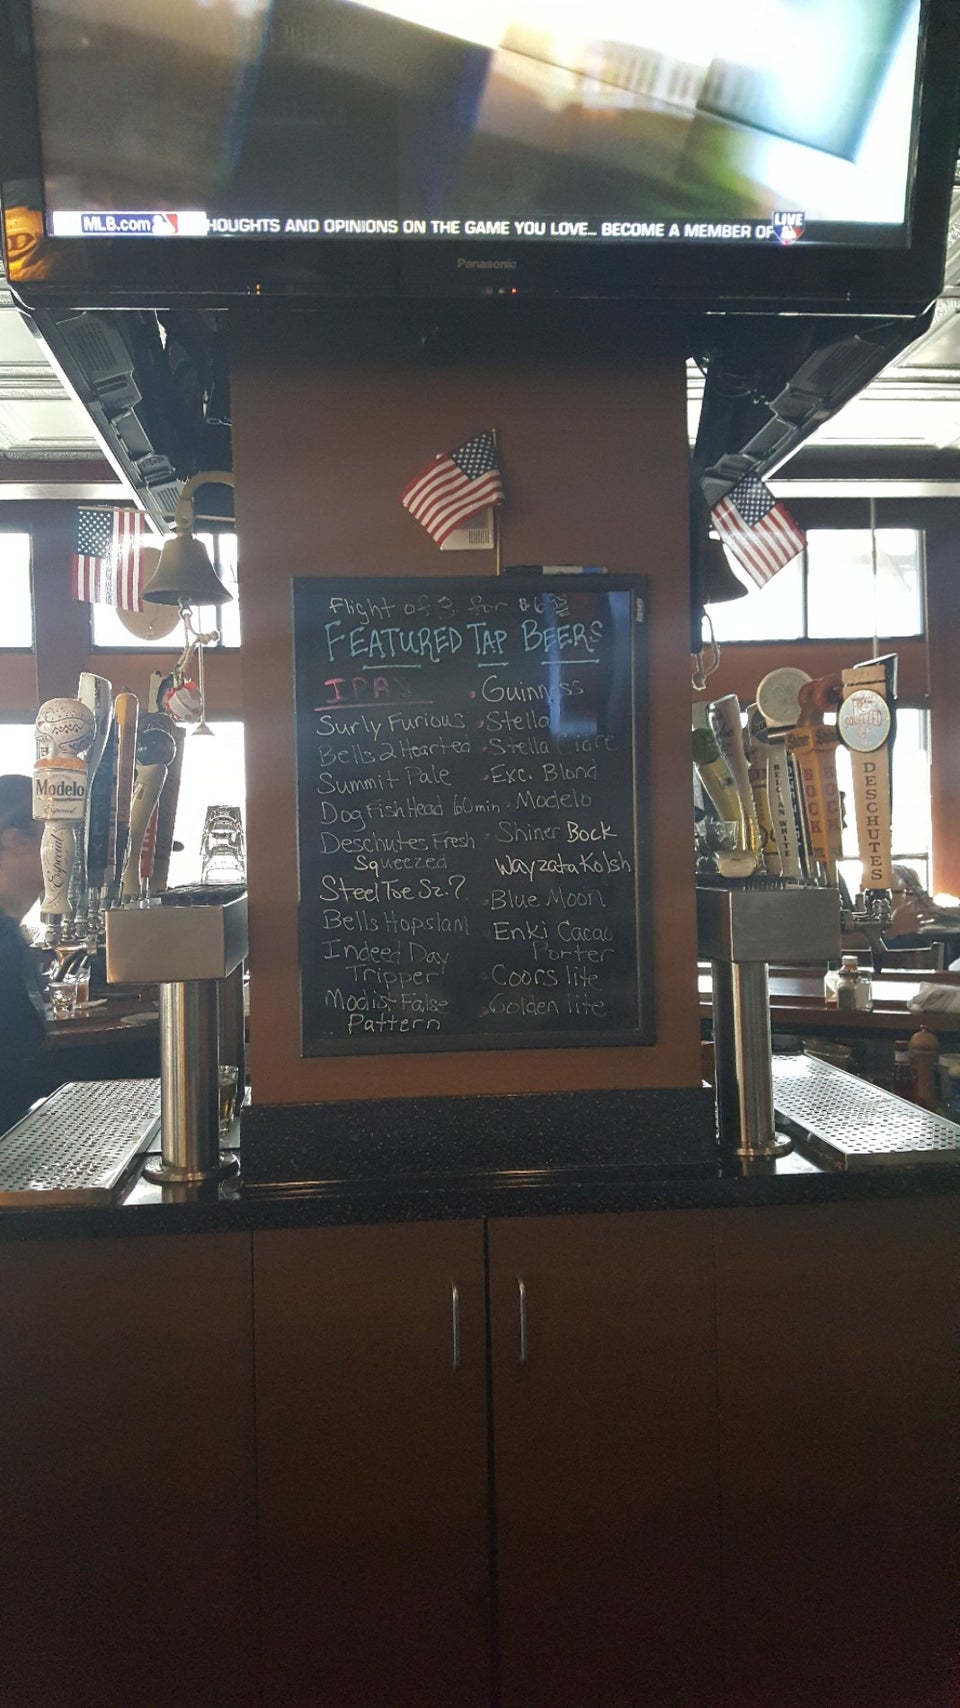 MLB.com HOUGHTS AND OPINIONS ON THE GAME YOU LOVE... BECOME A MEMBER OF LIVE
Panasonic
Flight of 3 for $6
FEATURED TAP BEERS
IPA's
Surly Furious
Bells 2 Hearted
Summit Pale
Dog Fish Head 60 min
Deschutes Fresh
Squeezed
Steel Toe Sz. 7
Bells Hopslam
Indeed Day
Tripper
Modist False
Pattern
Guinness
Stella
Stella Cidre
Exc. Blond
Modelo
Shiner Bock
Wayzata Kolsh
Blue Moon
Enki Cacao
Porter
Coors lite
Golden lite
Modelo
Especial
Especial
BELGIAN WHITE
Shiner
BOCK
FRESH
SQUEEZED
DESCHUTES